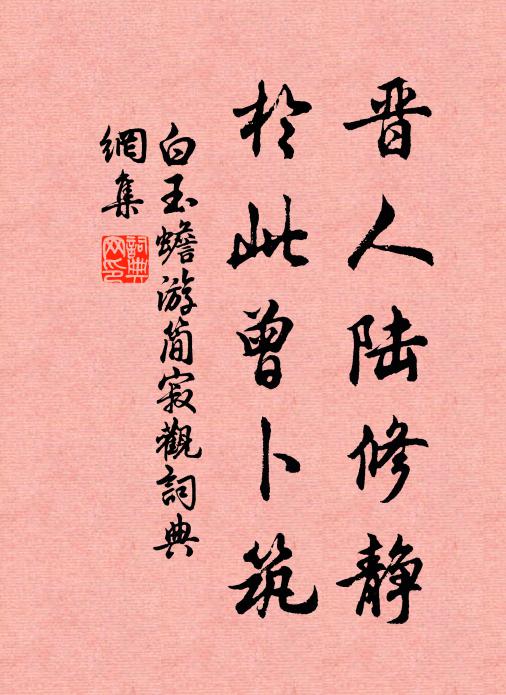 晋人陆修静
於此曾卜筑
白玉蟾游简寂觀詞典
網集
詞典网印